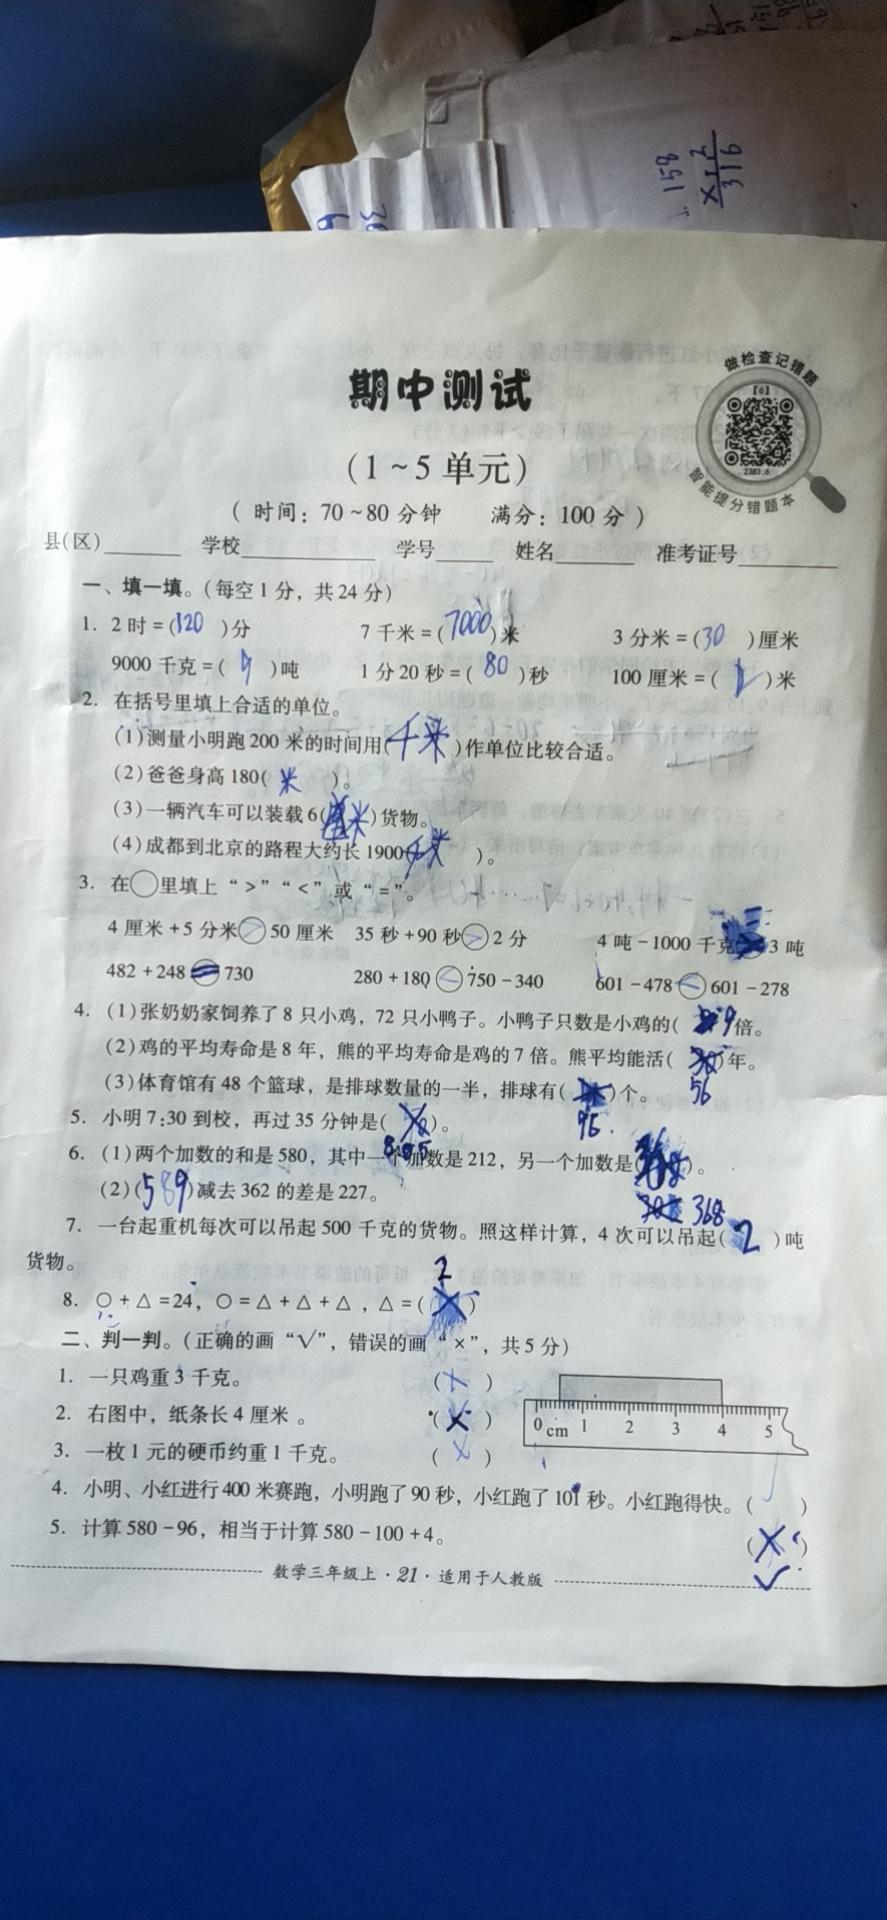 158
×  2
316
做检查记错题
【6】
2383.6
智能提分错题本
期中测试
(1~5单元)
(时间：70~80分钟 满分：100分)
县(区)________ 学校________ 学号______ 姓名________ 准考证号________
一、填一填。(每空1分，共24分)
1. 2时=(120)分 7千米=(7000)米 3分米=(30)厘米
9000千克=(9)吨 1分20秒=(80)秒 100厘米=( )米
2. 在括号里填上合适的单位。
(1)测量小明跑200米的时间用(千米)作单位比较合适。
(2)爸爸身高180(米)。
(3)一辆汽车可以装载6( 米)货物。
(4)成都到北京的路程大约长1900(千米)。
3. 在○里填上“>”“<”或“=”。
4厘米+5分米>50厘米 35秒+90秒>2分 4吨-1000千克 3吨
482+248=730 280+180<750-340 601-478<601-278
4. (1)张奶奶家饲养了8只小鸡，72只小鸭子。小鸭子只数是小鸡的(9倍。
(2)鸡的平均寿命是8年，熊的平均寿命是鸡的7倍。熊平均能活( )年。
56
(3)体育馆有48个篮球，是排球数量的一半，排球有( )个。
96.
5. 小明7:30到校，再过35分钟是( )。
8:05
6. (1)两个加数的和是580，其中一个加数是212，另一个加数是( )。
368
(2)(589)减去362的差是227。
7. 一台起重机每次可以吊起500千克的货物。照这样计算，4次可以吊起(2)吨
货物。
2
8. ○+△=24，○=△+△+△，△=( )
二、判一判。(正确的画“√”，错误的画“×”，共5分)
1. 一只鸡重3千克。 (×)
2. 右图中，纸条长4厘米。 (×)
0 cm 1 2 3 4 5
3. 一枚1元的硬币约重1千克。 (×)
4. 小明、小红进行400米赛跑，小明跑了90秒，小红跑了101秒。小红跑得快。( )
5. 计算580-96，相当于计算580-100+4。 (×)
√
数学三年级上·21·适用于人教版